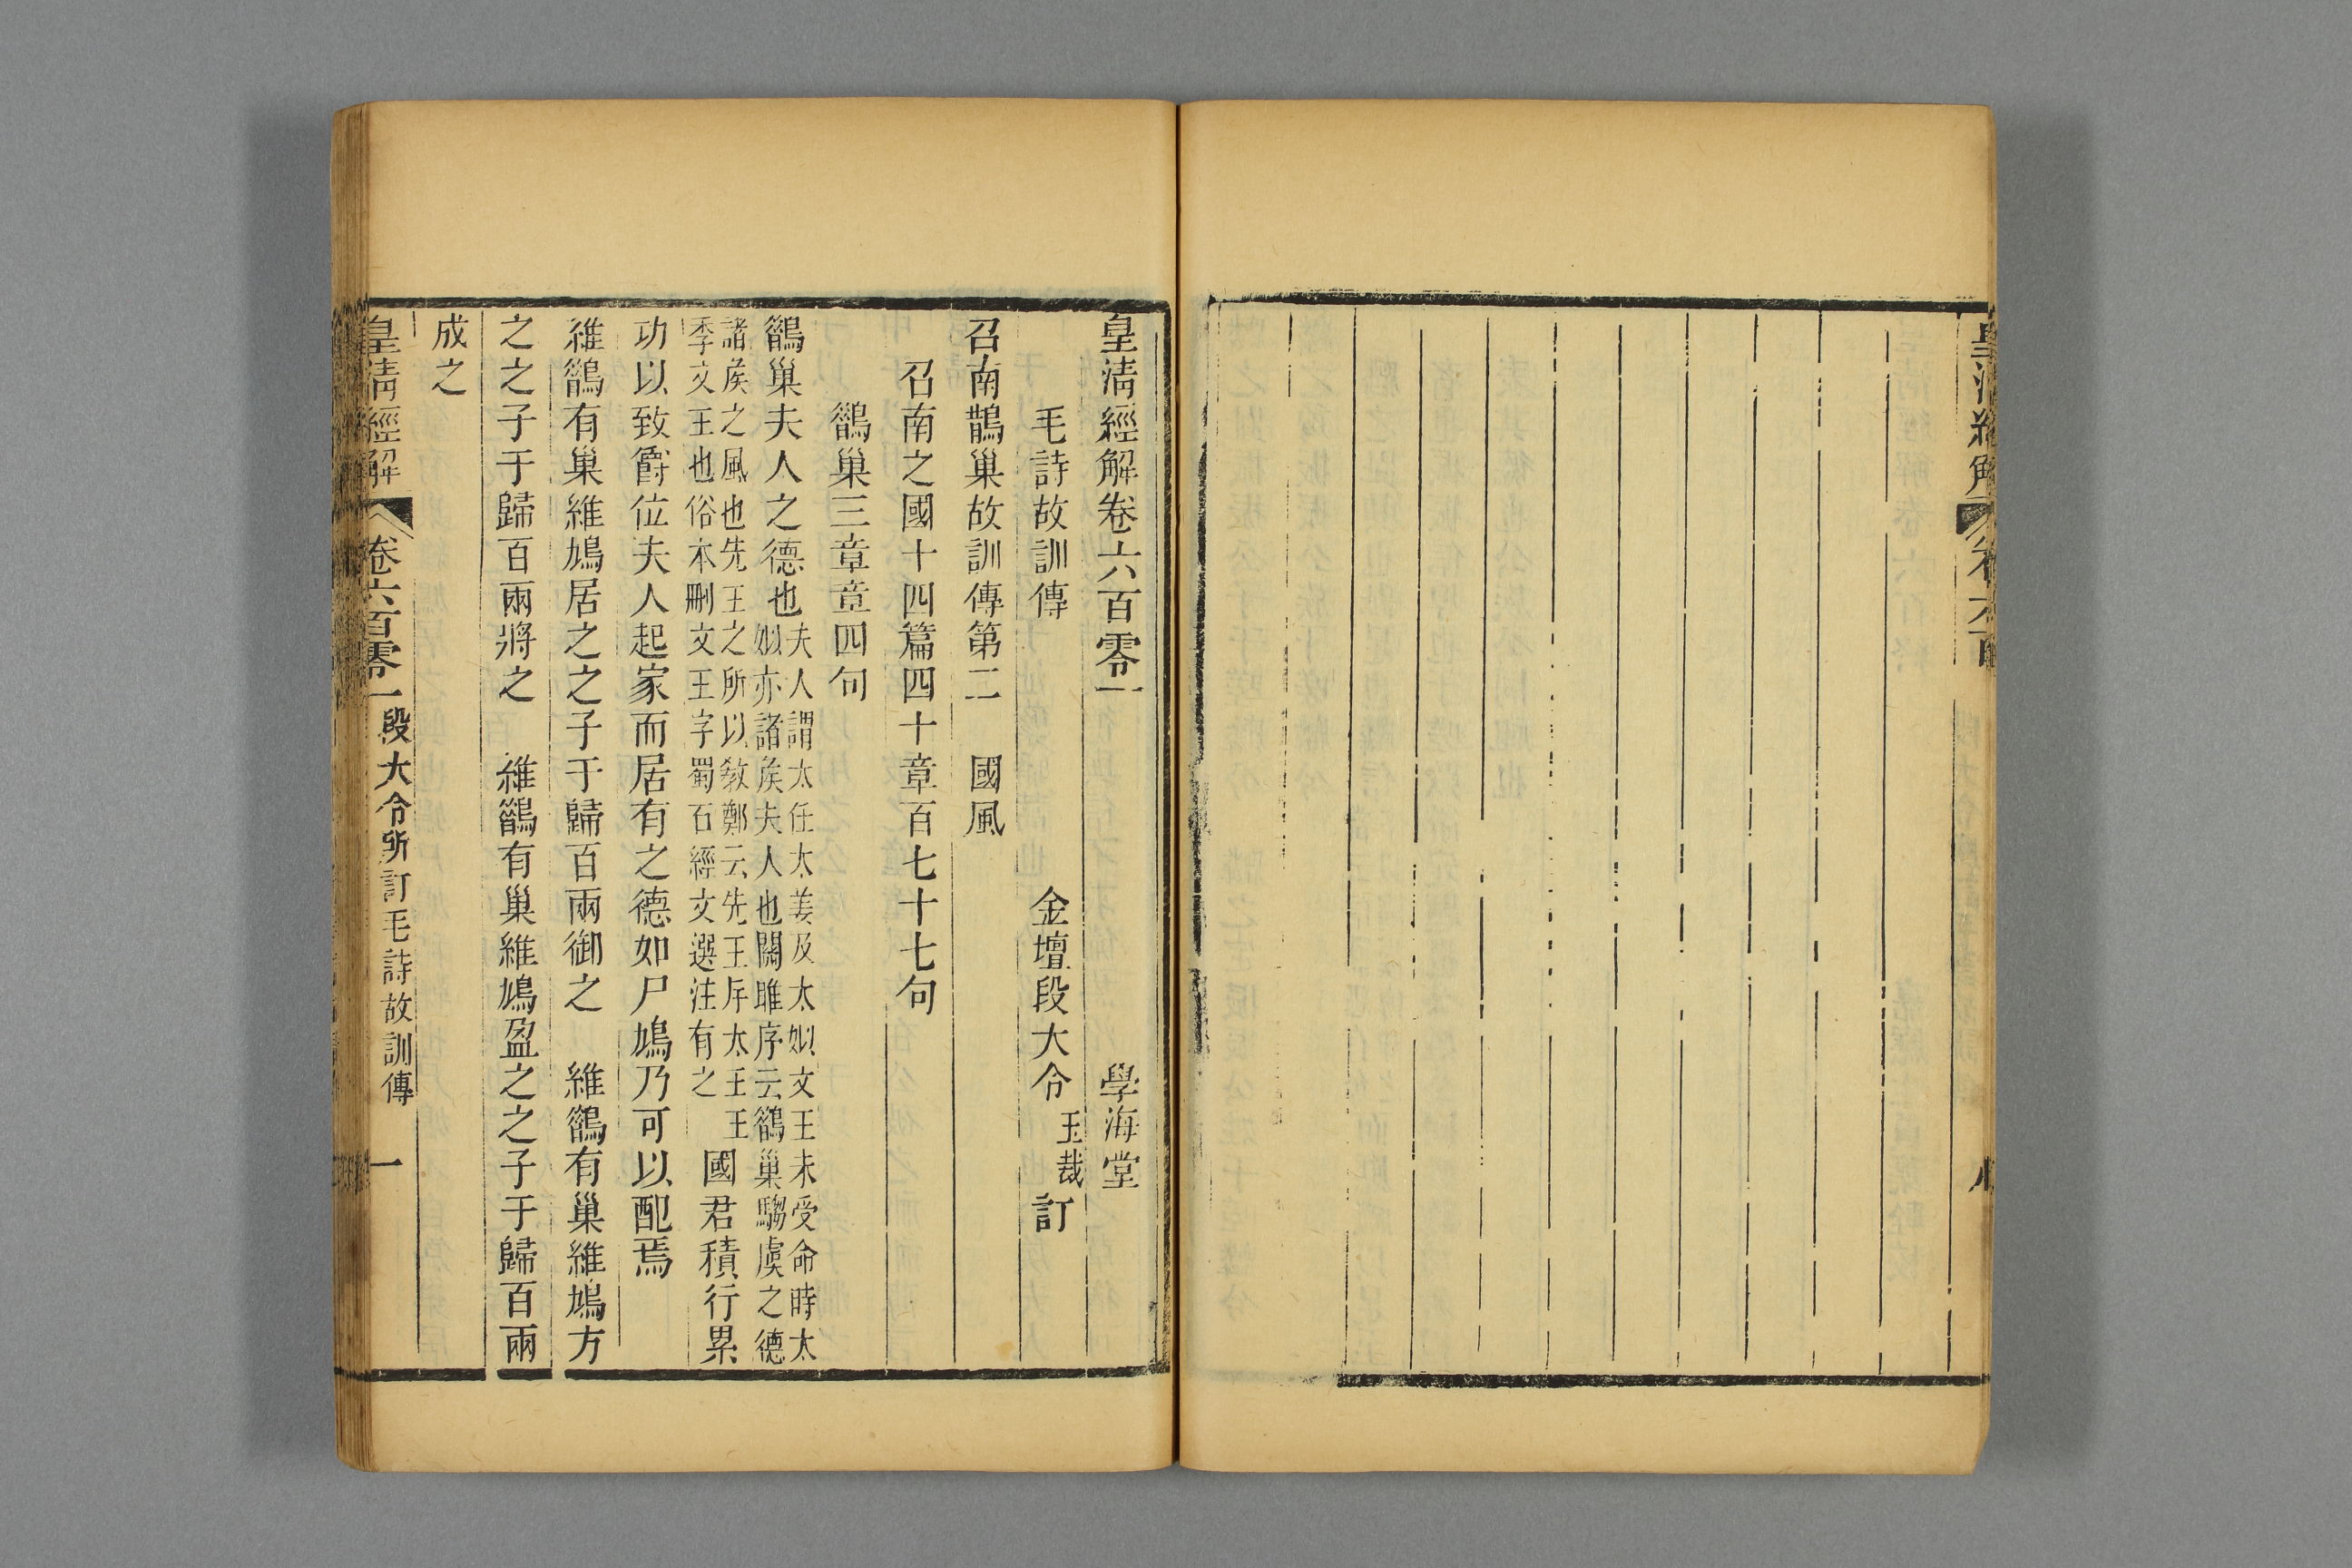 皇清經解卷六百零一 學海堂
毛詩故訓傳 金壇段大令玉裁訂
召南鵲巢故訓傳第二 國風
召南之國十四篇四十章百七十七句
鵲巢三章章四句
鵲巢夫人之德也夫人謂太任太姜及太姒文王未受命時太
姒亦諸矦夫人也關雎序云鵲巢騶虞之德
諸矦之風也先王之所以敎鄭云先王斥太王王
季文王也俗本刪文王字蜀石經文選注有之國君積行累
功以致爵位夫人起家而居有之德如尸鳩乃可以配焉
維鵲有巢維鳩居之之子于歸百兩御之 維鵲有巢維鳩方
之之子于歸百兩將之 維鵲有巢維鳩盈之之子于歸百兩
成之
皇清經解 卷六百零一 段大令所訂毛詩故訓傳 一